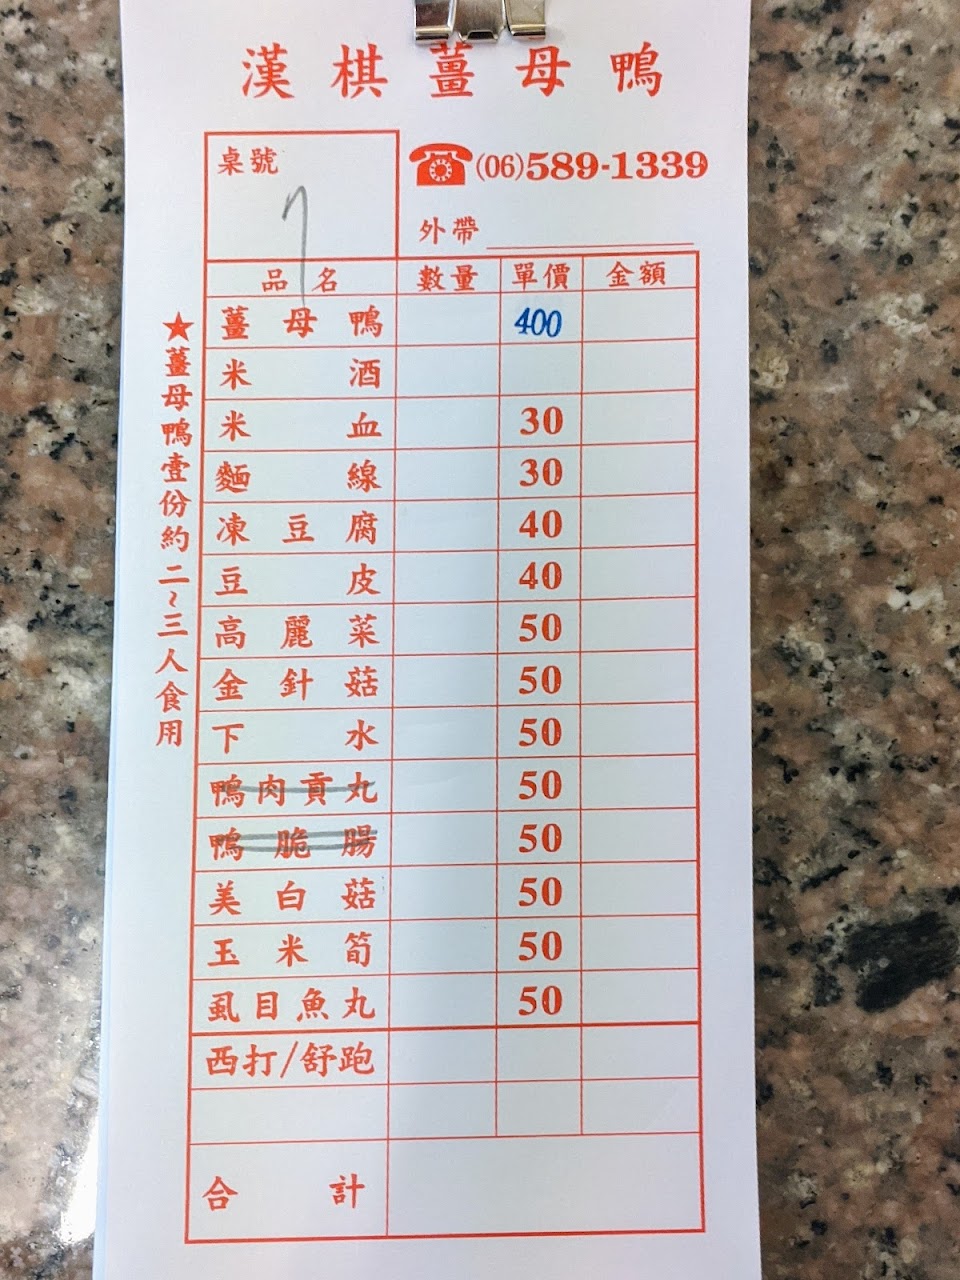 漢棋薑母鴨
桌號
7
☎(06)589-1339
外帶
品名 數量 單價 金額
薑母鴨 400
米酒
米血 30
麵線 30
凍豆腐 40
豆皮 40
高麗菜 50
金針菇 50
下水 50
鴨肉貢丸 50
鴨脆腸 50
美白菇 50
玉米筍 50
虱目魚丸 50
西打/舒跑
合計
★薑母鴨壹份約二~三人食用